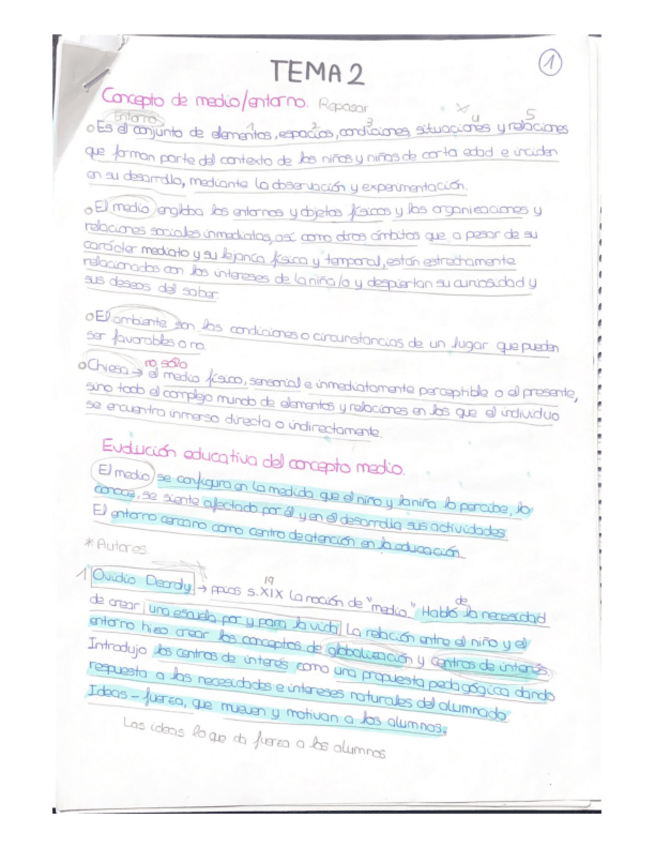 1
TEMA 2
Concepto de medio/entorno. Repasar
Entorno 1 2 3 4 5
o Es el conjunto de elementos, espacios, condiciones, situaciones y relaciones
que forman parte del contexto de los niños y niñas de corta edad e inciden
en su desarrollo, mediante la observación y experimentación.
o El medio engloba los entornos y objetos físicos y las organizaciones y
relaciones sociales inmediatas, así como otros ámbitos que a pesar de su
carácter mediato y su lejanía física y temporal, están estrechamente
relacionados con los intereses de la niña/o y despiertan su curiosidad y
sus deseos del saber.
o El ambiente son las condiciones o circunstancias de un lugar que pueden
ser favorables o no.
no sólo
o Chiesa → el medio físico, sensorial e inmediatamente perceptible o el presente,
sino todo el complejo mundo de elementos y relaciones en los que el individuo
se encuentra inmerso directa o indirectamente.
Evolución educativa del concepto medio.
El medio se configura en la medida que el niño y la niña lo percibe, lo
conoce, se siente afectado por él y en él desarrolla sus actividades
El entorno cercano como centro de atención en la educación.
* Autores
1 Ovidio Decroly → ppios s. XIX la noción de "medio." Habló de la necesidad
19
de crear una escuela por y para la vida. La relación entre el niño y el
entorno hizo crear los conceptos de globalización y centros de interés.
Introdujo los centros de interés como una propuesta pedagógica dando
respuesta a las necesidades e intereses naturales del alumnado
Ideas-fuerza, que mueven y motivan a los alumnos.
Las ideas lo que da fuerza a los alumnos